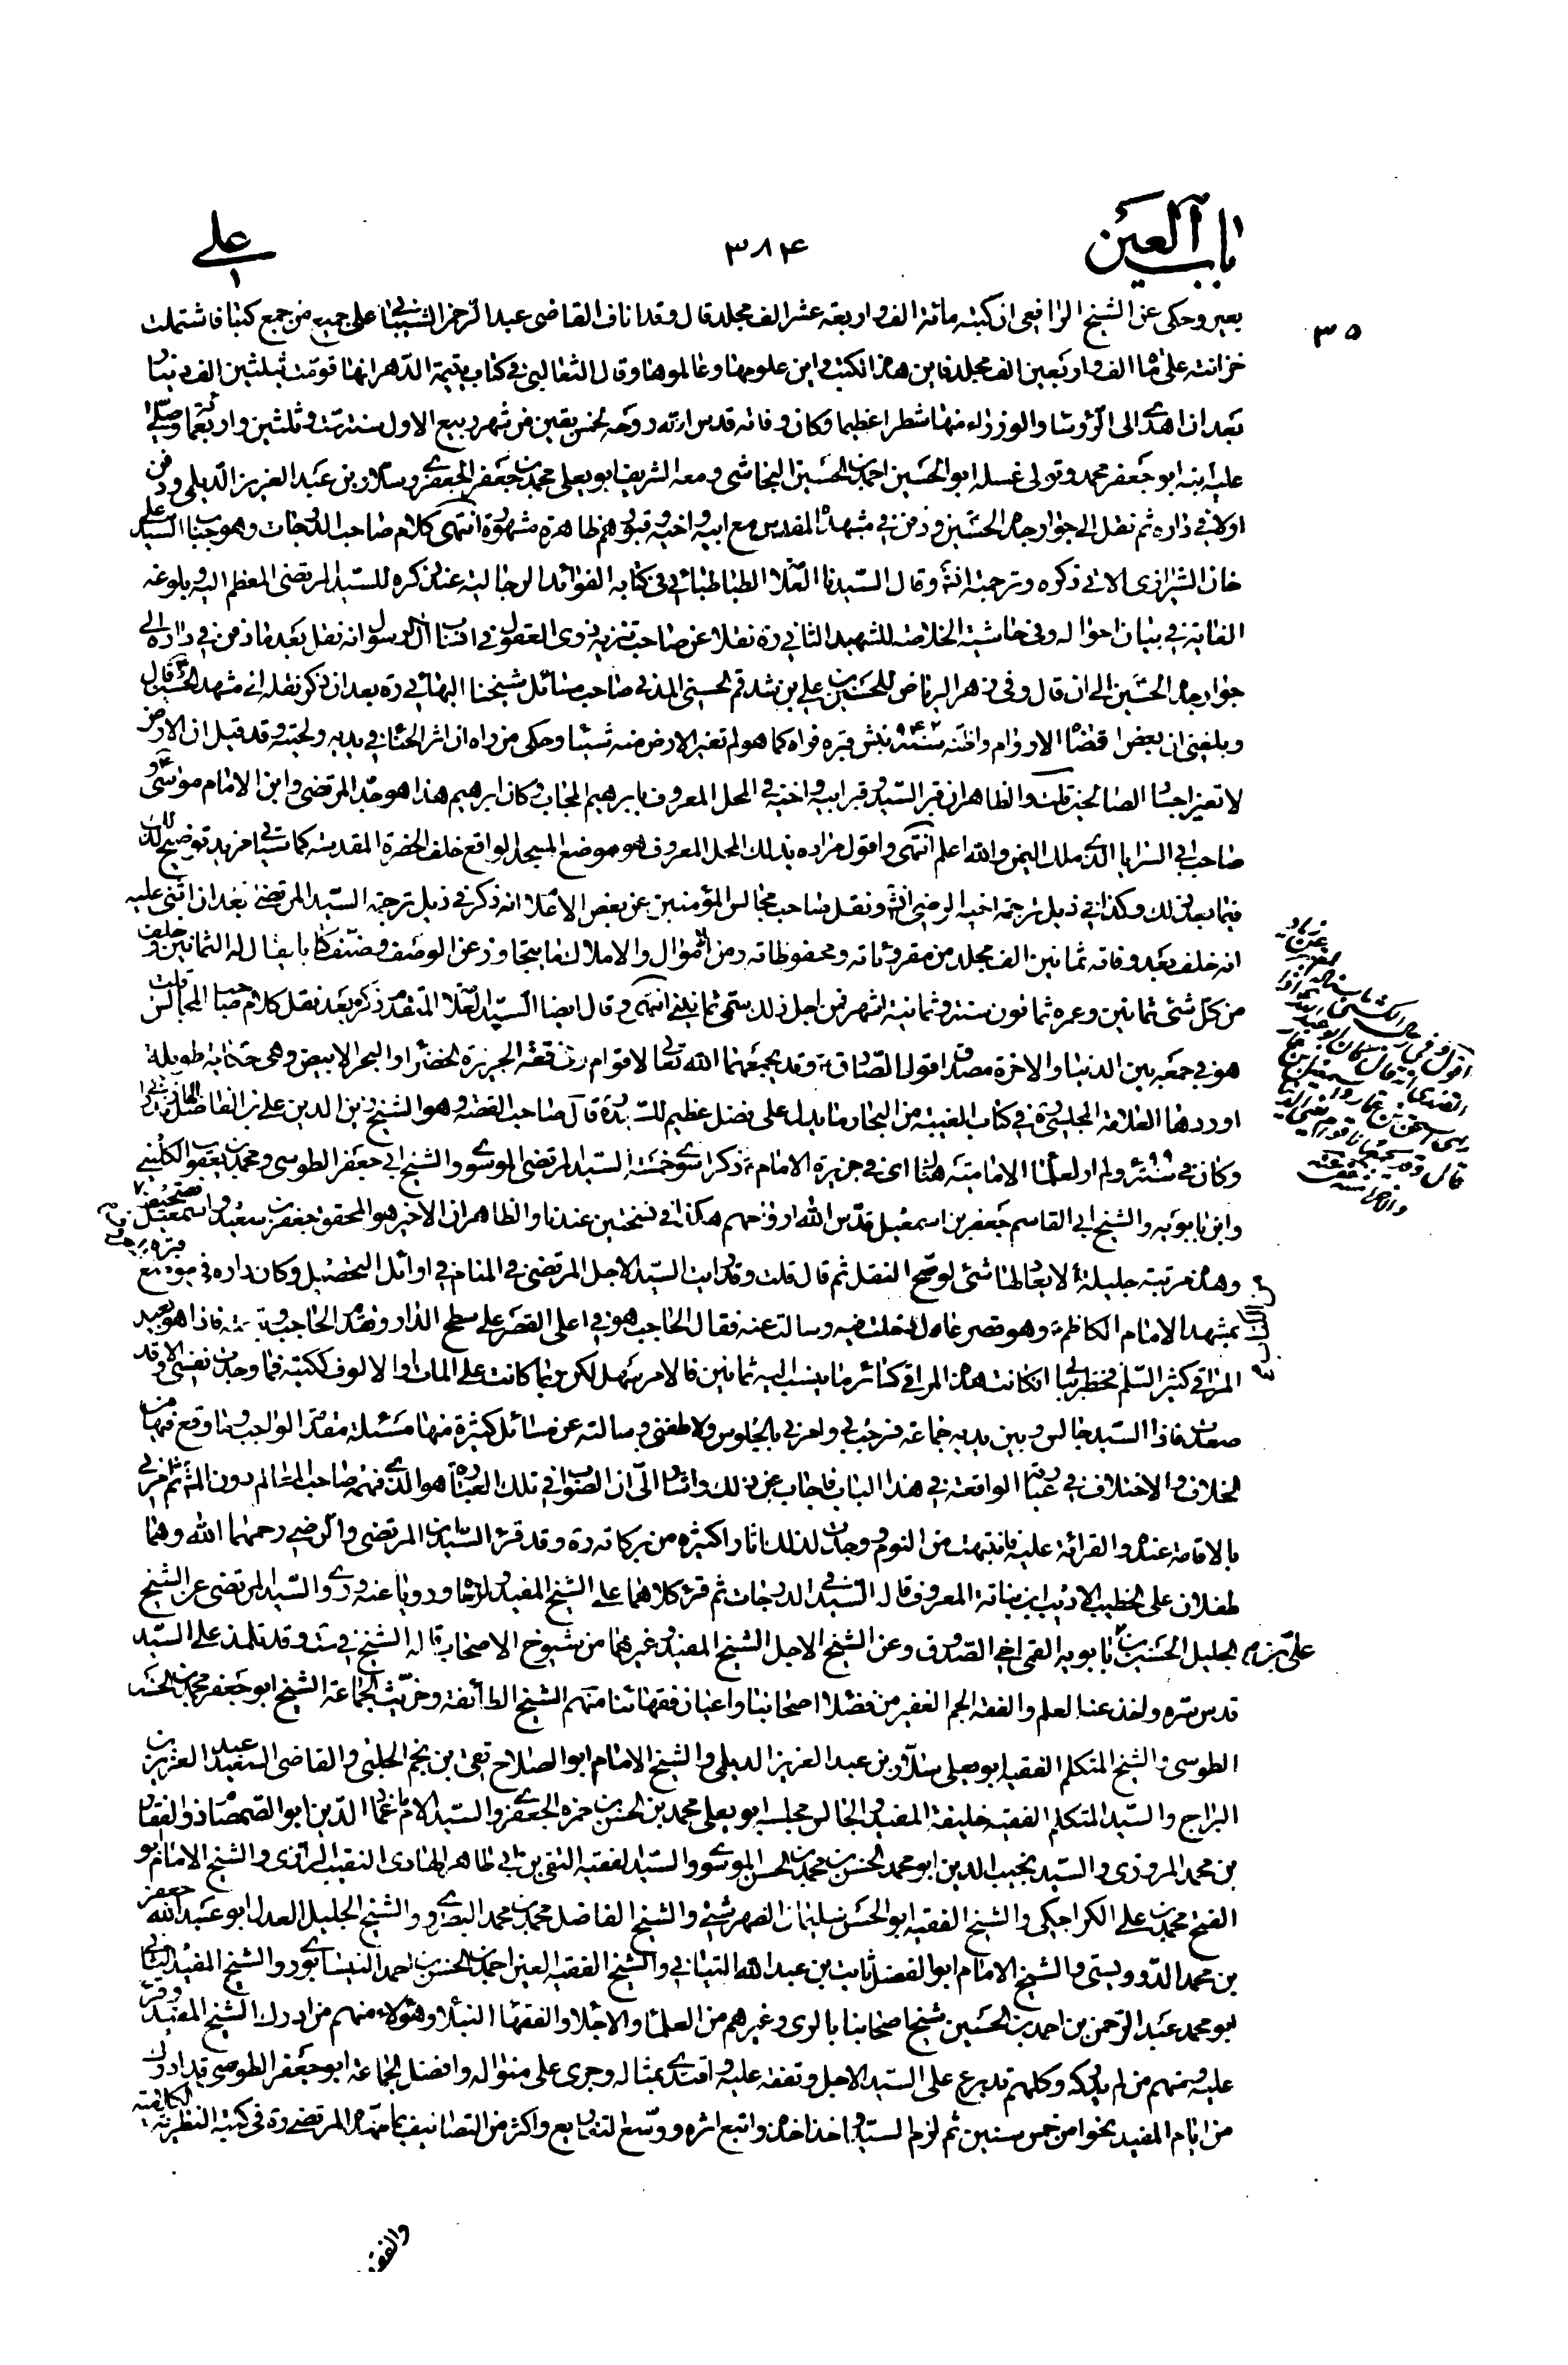 باب العين
٣٨۴
على
٣٥
بعير وحكى عن الشيخ الرافعى ان كتبه مائة الف واربعة عشر الف مجلد قال وقد اناف القاضى عبد الرحمن الشيبانى على جميع من جمع كتبا فاشتملت
خزانته على مائة الف واربعين الف مجلد فاين هذه الكتب واين علومها وعالموها وقال الثعالبى فى كتاب يتيمة الدهر انها قومت بثلثين الف دينار
بعد ان اهدى الى الرؤسا والوزراء منها شطرا عظيما وكان وفاته قدس الله روحه لخمس بقين من شهر ربيع الاول سنة ست وثلثين واربعمائة وصلى
عليه ابنه ابو جعفر محمد وتولى غسله ابو الحسين احمد بن الحسين النجاشى ومعه الشريف ابو يعلى محمد بن جعفر الجعفرى وسلار بن عبد العزيز الديلمى ودفن
اولا فى داره ثم نقل الى جوار جده الحسين ودفن فى مشهده المقدس مع ابيه واخيه وقبورهم ظاهرة مشهورة انتهى كلام صاحب الدرجات وهو جناب السيد على
خان الشيرازى الاتى ذكره وترجمته انش وقال السيدنا العلامة الطباطبائى فى كتابه الفوائد الرجالية عند ذكره للسيد المرتضى المعظم اليه وبلوغه
الغاية فى بيان احواله وفى حاشية الخلاصة للشهيد الثانى ره نقلا عن صاحب تنزيه ذوى العقول فى انساب آل الرسول انه نقل بعد ما دفن فى داره الى
جوار جده الحسين الى ان قال وفى زهر الرياض للحسين بن على بن شدقم الحسينى المدنى صاحب مسائل شيخنا البهائى ره بعد ان ذكر نقله الى مشهد الحسين ع قال
وبلغنى ان بعض قضاة الاروام واظنه سنة ٩۴٢ نبش قبره فراه كما هو لم تغير الارض منه شيئا وحكى من راه ان اثر الحناء فى يديه ولحيته وقد قيل ان الارض
لا تغير اجساد الصالحين قلت والظاهر ان قبر السيد وقبر ابيه واخيه فى المحل المعروف بابرهيم المجاب وكان ابرهيم هذا هو جد المرتضى وابن الامام موسى ع و
صاحب ابى السرايا الذى ملك اليمن والله اعلم انتهى واقول مراده بذلك المحل المعروف هو موضع المسجد الواقع خلف الحضرة المقدسة كما سياتى مزيد توضيح لذلك
فيما بعد ذلك وكذا فى ذيل ترجمة اخيه الرضى انش ونقل صاحب مجالس المؤمنين عن بعض الاعلام انه ذكر فى ذيل ترجمة السيد المرتضى بعد ان اثنى عليه
انه خلف بعد وفاته ثمانين الف مجلد من مقروئاته ومحفوظاته ومن الاموال والاملاك ما يتجاوز عن الوصف وصنف كتابا يقال له الثمانين وخلف
من كل شئ ثمانين وعمره ثمانون سنة وثمانية اشهر فمن اجل ذلك سمى ثمانينى انتهى وقال ايضا السيد العلامة المتقدم ذكره بعد نقل كلام صاحب المجالس قلت
هو فى جمعه بين الدنيا والاخرة مصداق قول الصادق ع وقد يجمعهما الله تعالى لاقوام وفى قصة الجزيرة الخضراء والبحر الابيض وهى حكاية طويلة
اوردها العلامة المجلسى ره فى كتاب الغيبة من البحار ما يدل على فضل عظيم للسيد ره قال صاحب القصة وهو الشيخ زين الدين على بن الفاضل المازندرانى
وكان فى سنة ولم ار لعلماء الامامية هناك اى فى جزيرة الامام ع ذكرا سوى خمسة السيد المرتضى الموسوى والشيخ ابى جعفر الطوسى ومحمد بن يعقوب الكلينى
وابن بابويه والشيخ ابى القاسم جعفر بن اسمعيل قدس الله ارواحهم هكذا فى نسختين عندنا والظاهر ان الاخير هو المحقق جعفر بن سعيد واسمعيل تصحيف
وهذه مرتبة جليلة لا يعادلها شئ لو صح النقل ثم قال قلت وقد رايت السيد الاجل المرتضى فى المنام فى اوائل التحصيل وكان داره فى موضع قبره
بمشهد الامام الكاظم ع وهو قصر عال فدخلت فيه وسالت عنه فقال الحاجب هو فى اعلى القصر على سطح الدار وتقدم الحاجب وتبعته فاذا هو بعيد
المراقى كثير السلم فخطر ببالى ان كانت هذه المراقى كسائر ما ينسب اليه ثمانين فالامر سهل لكن ربما كانت على المات او الالوف ككتبه فما وجدت نفسى الا وقد
صعدت فاذا السيد جالس وبين يديه جماعة فرحب بى وامرنى بالجلوس ولاطفنى وسالته عن مسائل كثيرة منها مسئلة مقدمة الواجب وما وقع فيها من
الخلاف والاختلاف فى عبارته الواقعة فى هذا الباب فاجاب عن ذلك واشار الى ان الصواب فى تلك العبارة هو الذى فهمه صاحب المعالم دون المش ثم امرنى
بالاقامة عنده والقرائة عليه فانتبهت من النوم ووجدت لذلك اثارا كثيرة من بركاته ره وقد قرء السيدين المرتضى والرضى رحمهما الله وهما
طفلان على الخطيب الاديب ابن نباتة المعروف قاله السيد فى الدرجات ثم قرء كلاهما على الشيخ المفيد ولازماه ورويا عنه وروى السيد المرتضى عن الشيخ
الجليل الحسين بن على بن بابويه القمى اخى الصدوق وعن الشيخ الاجل الشيخ المفيد وغيرهما من شيوخ الاصحاب قاله الشيخ فى ست وقد تلمذ على السيد
قدس سره واخذ عنه العلم والفقه الجم الغفير من فضلاء اصحابنا واعيان فقهائنا منهم الشيخ الطائفة وخريت الجماعة الشيخ ابو جعفر محمد بن الحسن
الطوسى والشيخ المتكلم الفقيه ابو يعلى سلار بن عبد العزيز الديلمى والشيخ الامام ابو الصلاح تقى بن نجم الحلبى والقاضى السعيد عبد العزيز بن
البراج والسيد المتكلم الفقيه خليفة المفيد والجالس مجلسه ابو يعلى محمد بن الحسن بن حمزه الجعفرى والسيد الامام عماد الدين ابو الصمصام ذو الفقار
بن محمد المروزى والسيد نجيب الدين ابو محمد الحسن بن محمد بن الحسن الموسوى والسيد الفقيه التقى بن ابى طاهر الهادى النقيب الرازى والشيخ الامام ابو
الفتح محمد بن على الكراجكى والشيخ الفقيه ابو الحسن سليمان الصهرشتى والشيخ الفاضل محمد بن محمد البصروى والشيخ الجليل العدل ابو عبد الله جعفر
بن محمد الدوويستى والشيخ الامام ابو الفضل ثابت بن عبد الله البنانى والشيخ الفقيه العين احمد بن الحسن بن احمد النيسابورى والشيخ المفيد الثانى
ابو محمد عبد الرحمن بن احمد بن الحسين شيخ اصحابنا بالرى وغيرهم من العلماء والاجلاء والفقهاء النبلاء وهؤلاء منهم من ادرك الشيخ المفيد وقرء
عليه ومنهم من لم يدركه وكلهم قد برع على السيد الاجل وتفقه عليه واقتدى بمثاله وجرى على منواله وافضل الجماعة ابو جعفر الطوسى قد ادرك
من ايام المفيد نحوا من خمس سنين ثم لزم السيد واخذ اخذه واتبع اثره ووسع التفاريع واكثر من التصانيف بما مهده المرتضى ره فى كتبه النظرية الكلامية
والفقهية